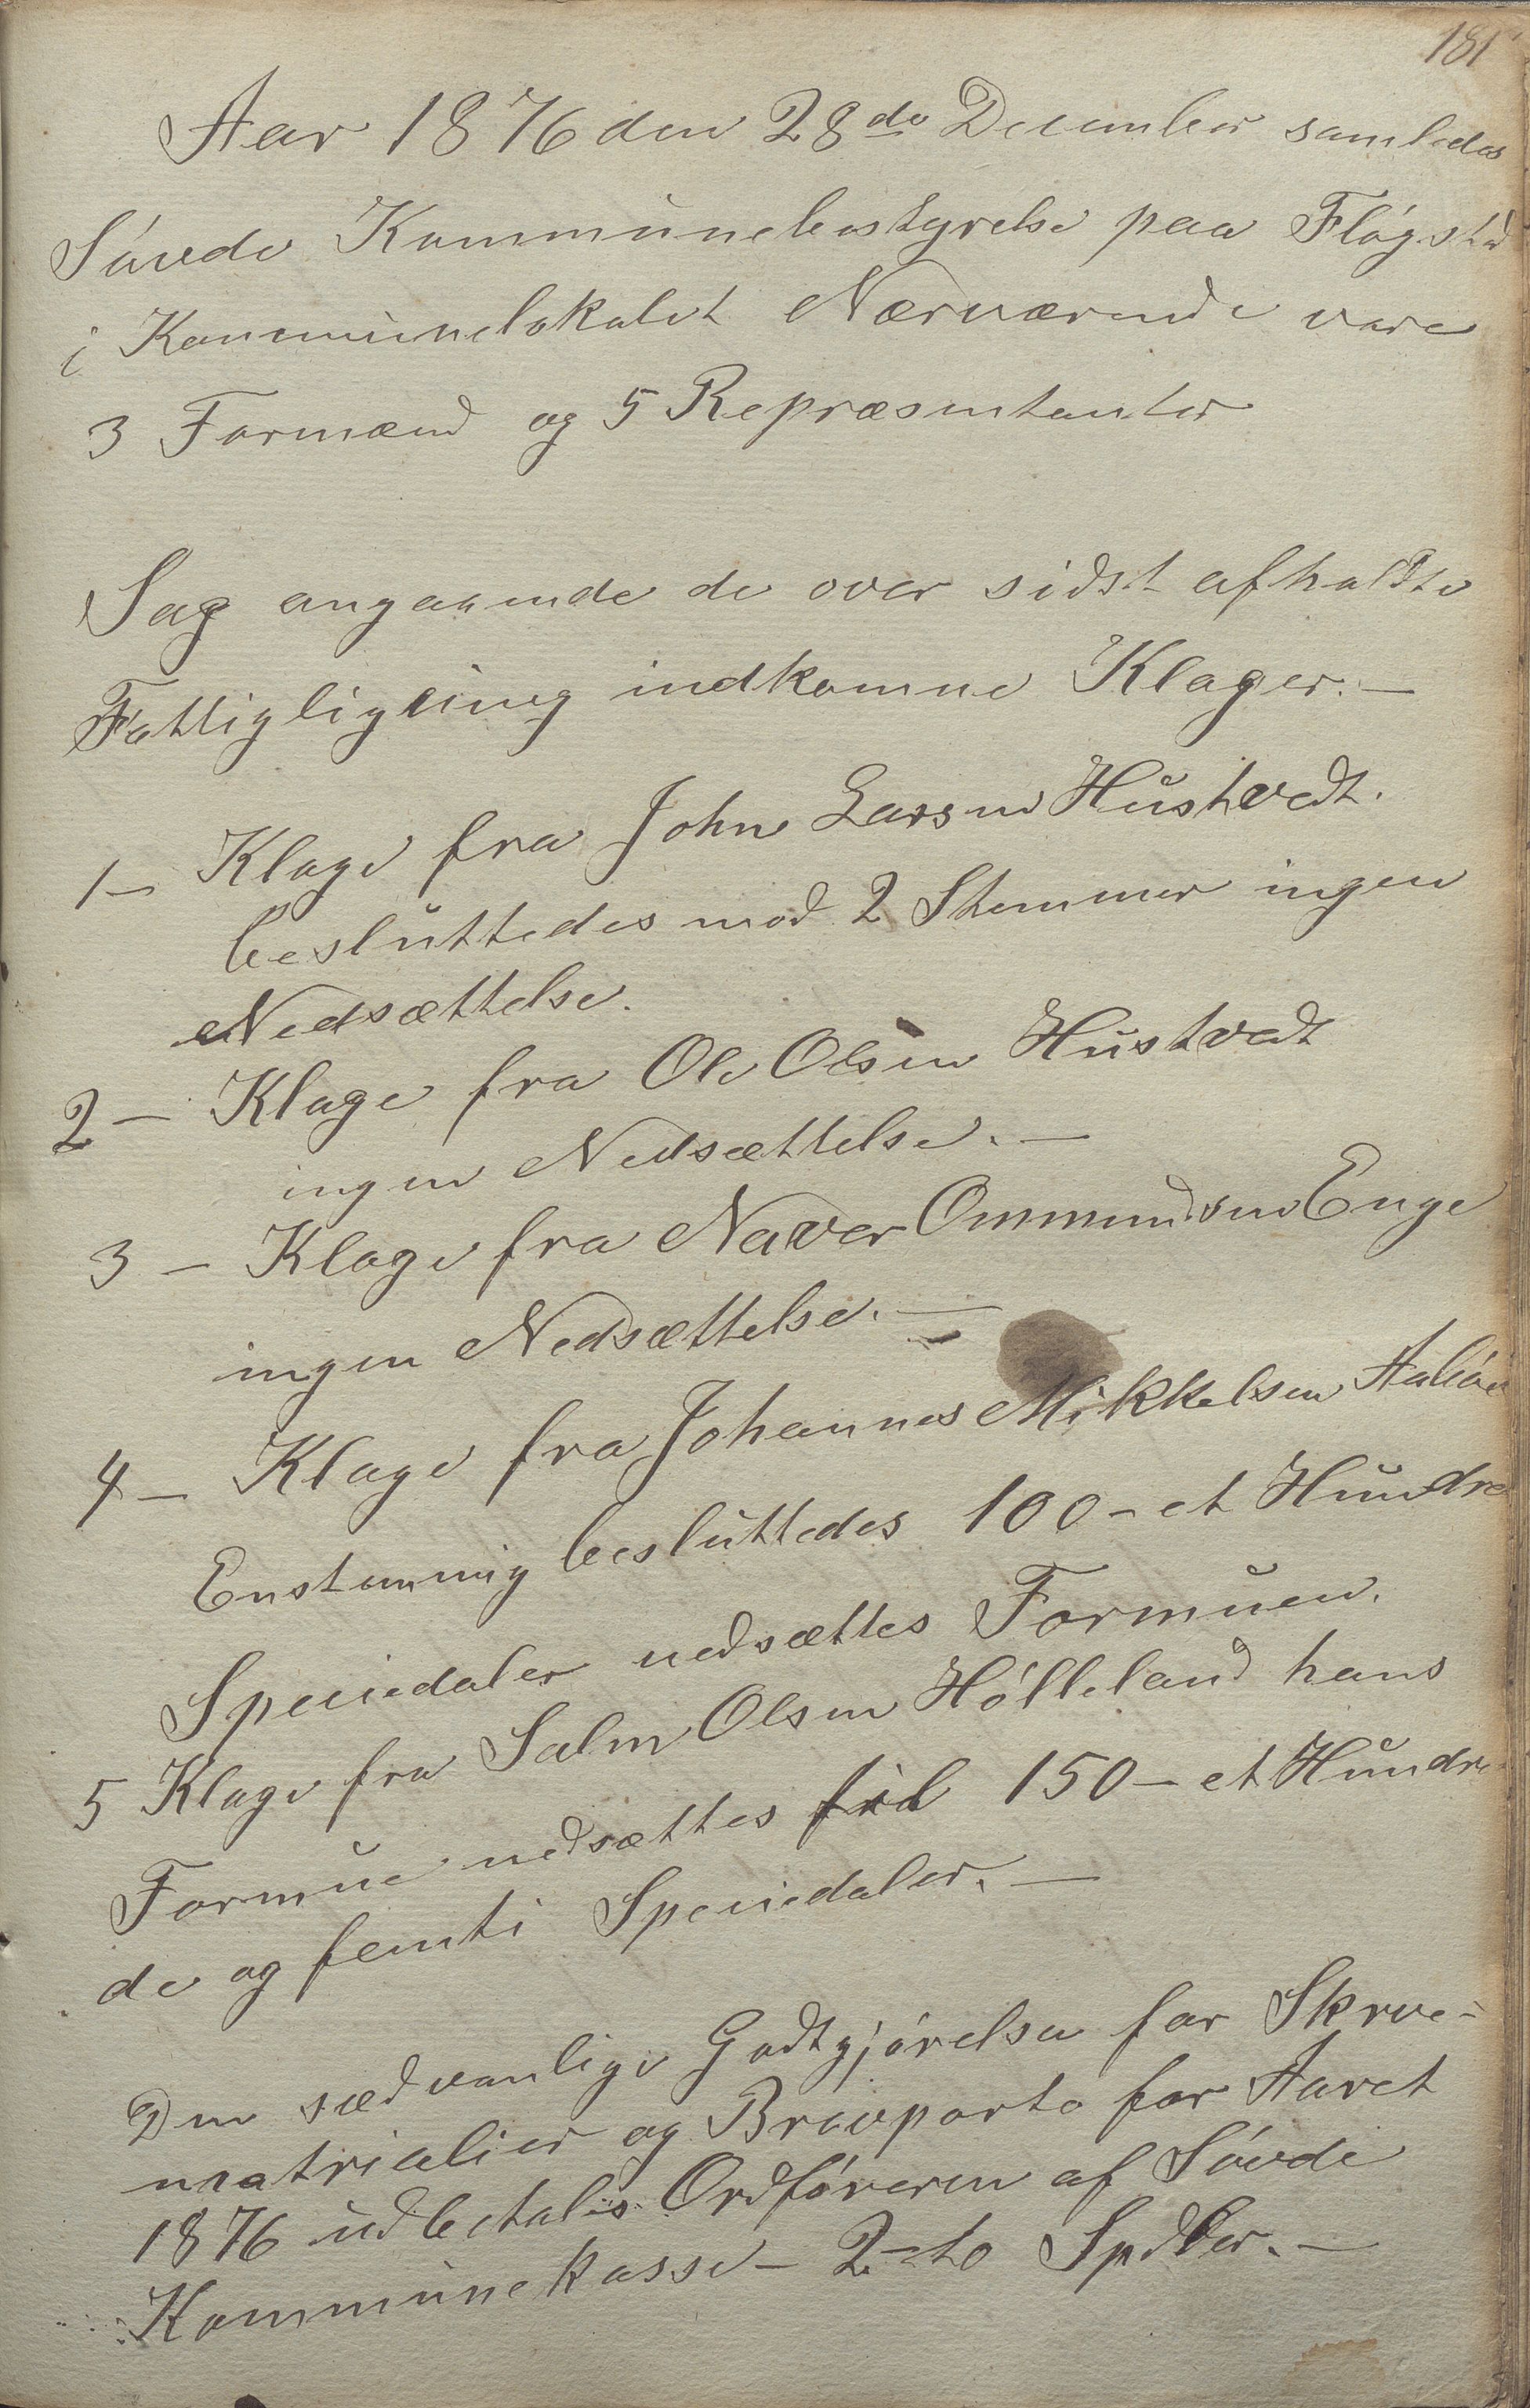 181
Aar 1876 den 28de December samledes
Søvde Kommunebestyrelse paa Fløgstad
i Kommunelokalet Nærværende vare
3 Formænd og 5 Repræsentanter
Sag angaaende de over sidst afholdte
Fattigligning indkomne Klager. —
1 — Klage fra John Larsen Hustvedt.
besluttedes mod 2 Stemmer ingen
Nedsættelse.
2 — Klage fra Ole Olsen Hustvedt
ingen Nedsættelse. —
3 — Klage fra Naver Ommundsen Enge
ingen Nedsættelse. —
4 — Klage fra Johannes Mikkelsen
Enstemmig besluttedes 100 - et Hundre
Speciedaler nedsættes Formuen.
5 Klage fra Salm Olsen Hølleland hans
Formue nedsættes til 150 - et Hundre
de og femti Speciedaler. —
Den sædvanlige Godtgjørelse for Skrve-
matrialier og Brevporto for Aaret
1876 udbetales Ordføreren af Søvde
Kommunekasse - 2 - to Spdler. —